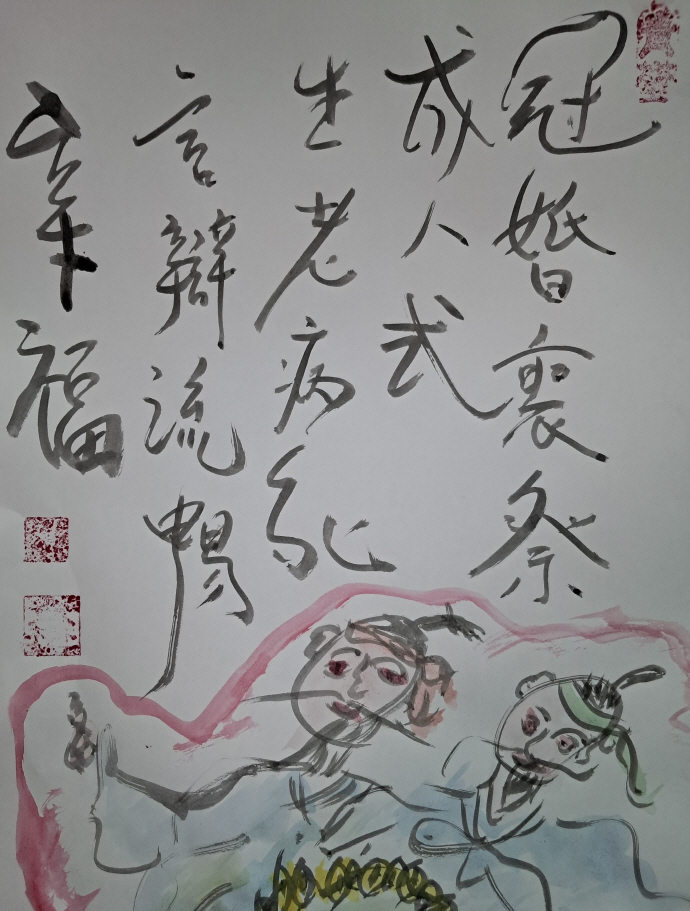 冠婚喪祭
成人式
生老病死
言辯流暢
幸福